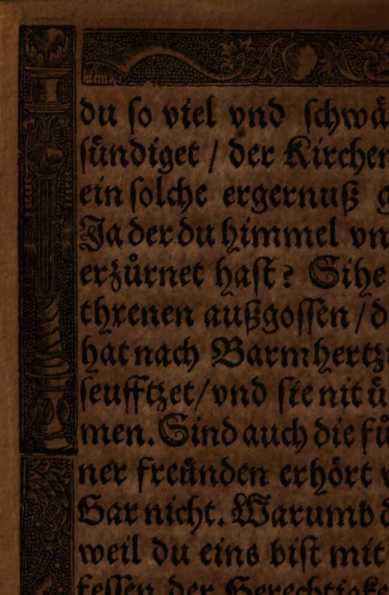 du so viel vnd schwä
sündiget / der Kirchen
ein solche ergernuß g
Ja der du himmel vn
erzürnet hast? Sihe
threnen außgossen / d
hat nach Barmhertzi
seufftzet / vnd sie nit ü
men. Sind auch die fü
ner freünden erhört
Gar nicht. Warumb d
weil du eins bist mit
fessen der Gerechtigke